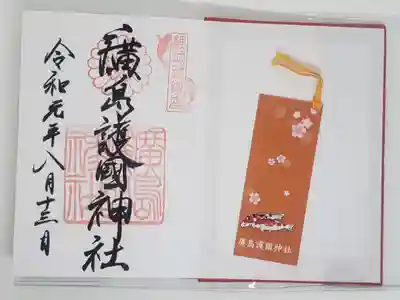 廣島護國神社
令和元年八月十三日
廣島
廣島護國神社